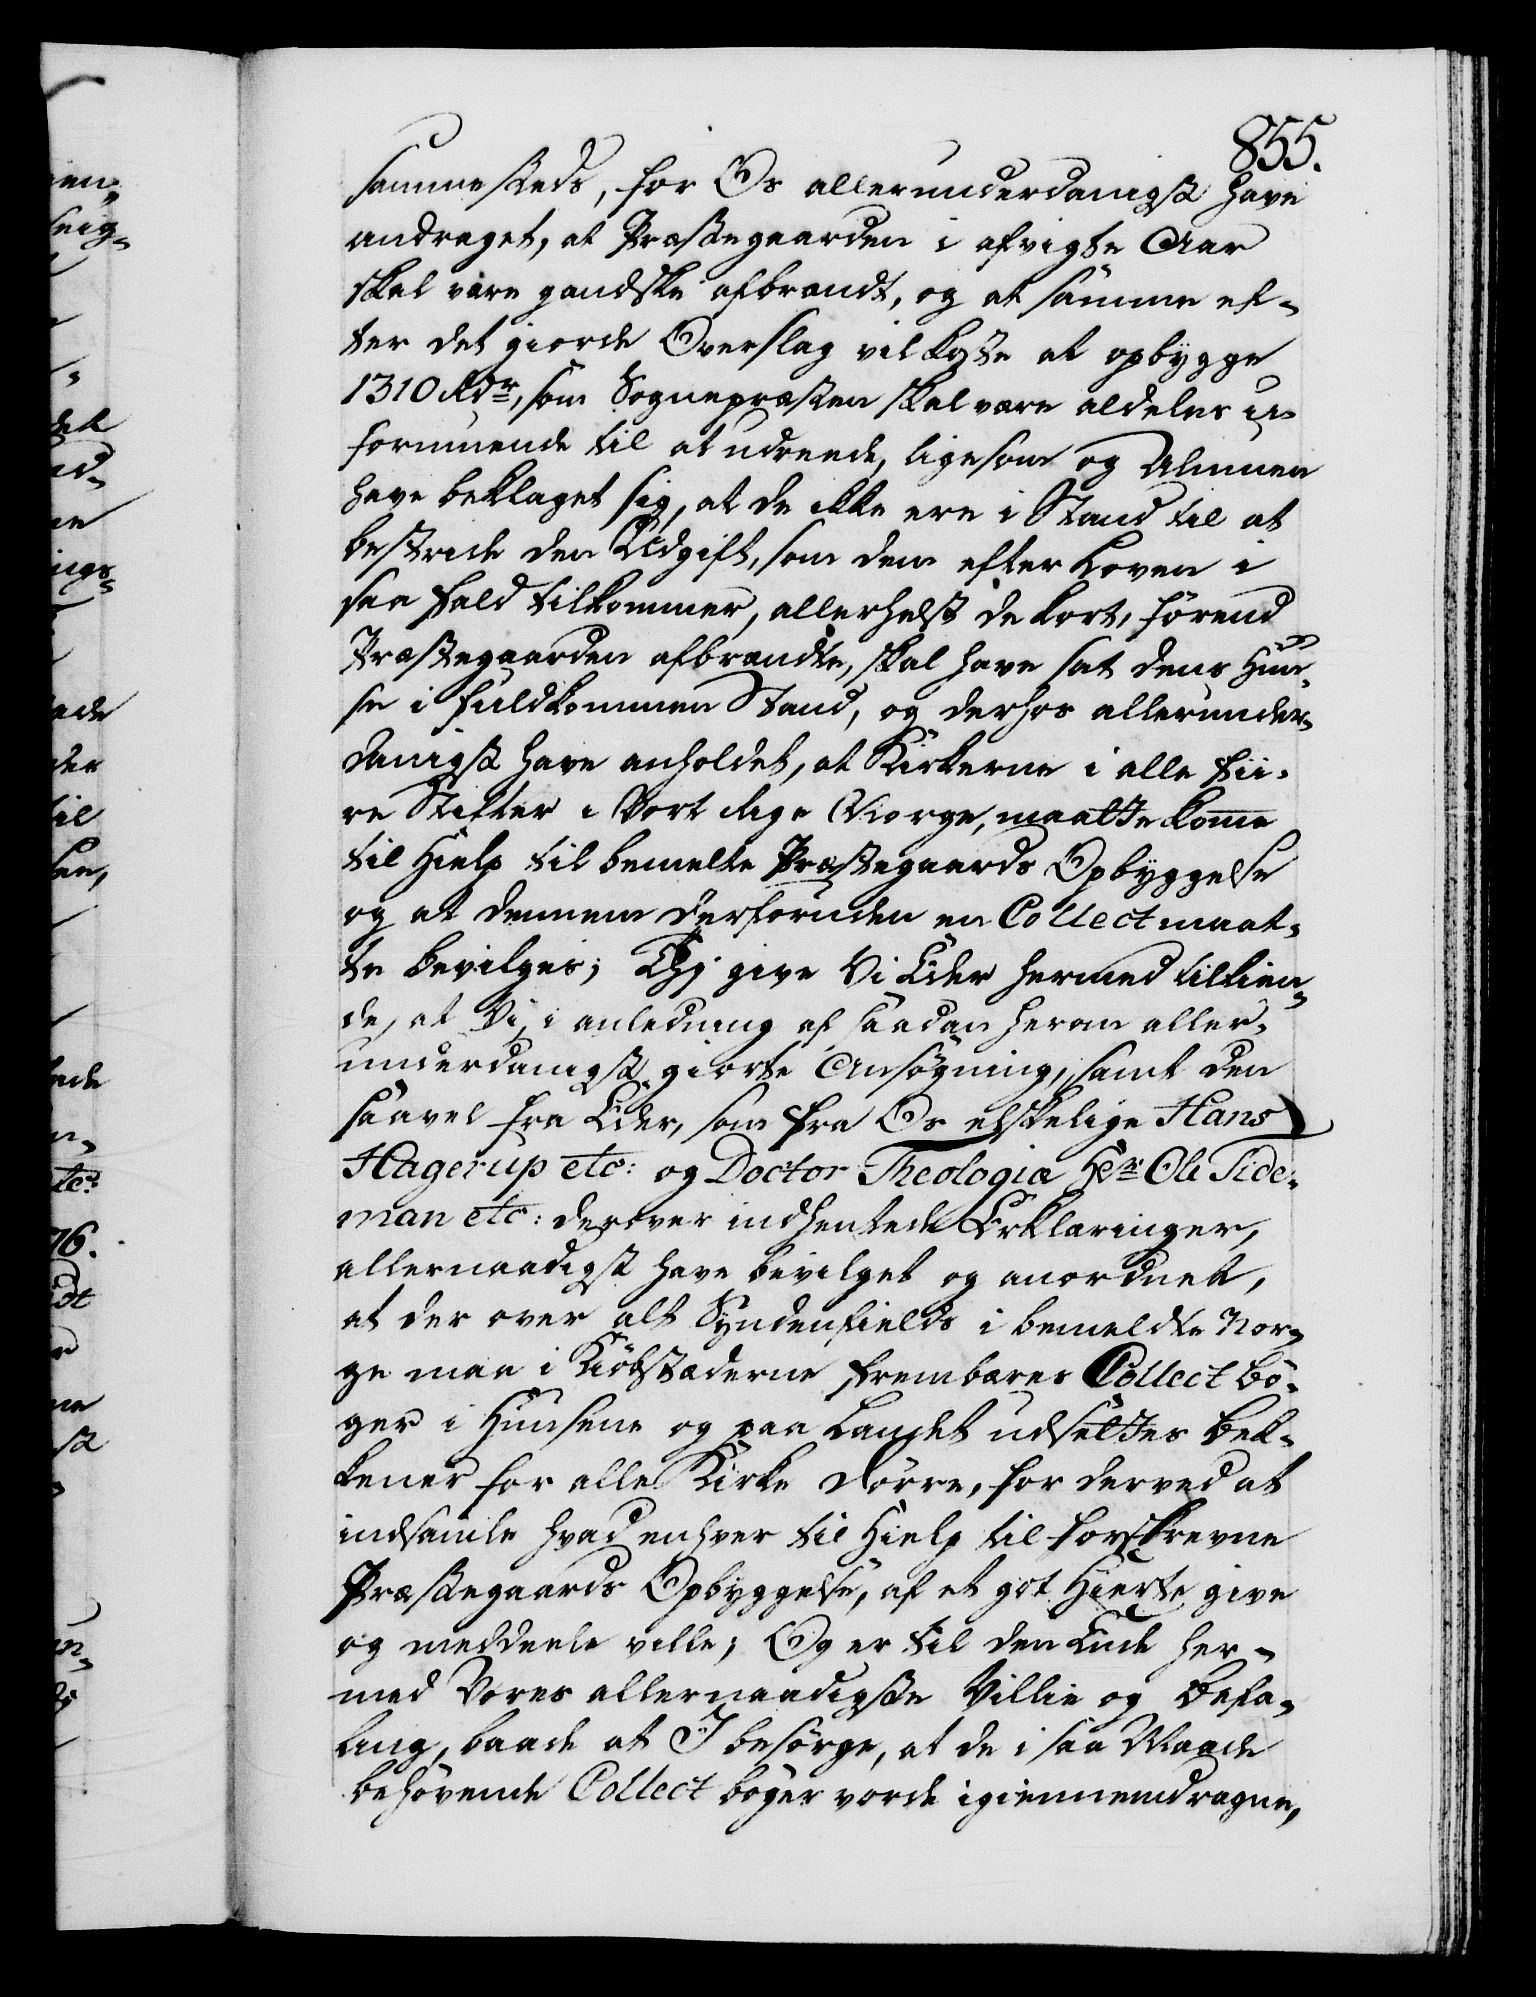 855.
sammesteds, for Os allerunderdanigst have
andraget, at Præstegaarden i afvigte Aar
skal være gandske afbrandt, og at samme ef-
ter det giorde Overslag vil koste at opbygge
1310 Rdr, som Sognepræsten skal være aldeles u-
formuende til at udreede, ligesom og Almuen
have beklaget sig, at de ikke ere i Stand til at
bestride den Udgift, som dem efter Loven i
saa Fald tilkommer, allerhelst de kort, förend
Præstegaarden afbrandte, skal have sat dens Huu-
se i fuldkommen Stand, og derhos allerunder-
danigst have anholdet, at Kirkerne i alle fii-
re Stifter i Vort Rige Norge, maatte komme
til Hielp til bemelte Præstegaards Opbyggelse
og at dennem derforuden en Collect maat-
te bevilges; Thj give Vi Eder hermed tilkien-
de, at Vi, i anledning af saadan herom aller-
underdanigst giorte Ansögning, samt den
saavel fra Eder, som fra Os elskelige Hans
Hagerup etc: og Doctor Theologiæ Hr Ole Tide-
man etc: derover indhentede Erklæringer,
allernaadigst have bevilget og anordnet,
at der over alt Syndenfields i bemeldte Nor-
ge maa i Kiöbstæderne frembæres Collect bö-
ger i Huusene og paa Landet udsættes Bek-
kener for alle Kirke Dörre, for derved at
indsamle hvad enhver til Hielp til forskrevne
Præstegaards Opbyggelse, af et got Hierte give
og meddeele ville; Og er til den Ende her-
med Vores allernaadigste Villie og Befa-
ling, baade at I besörge, at de i saa Maade
behövende Collect böger vorde igiennemdragne,